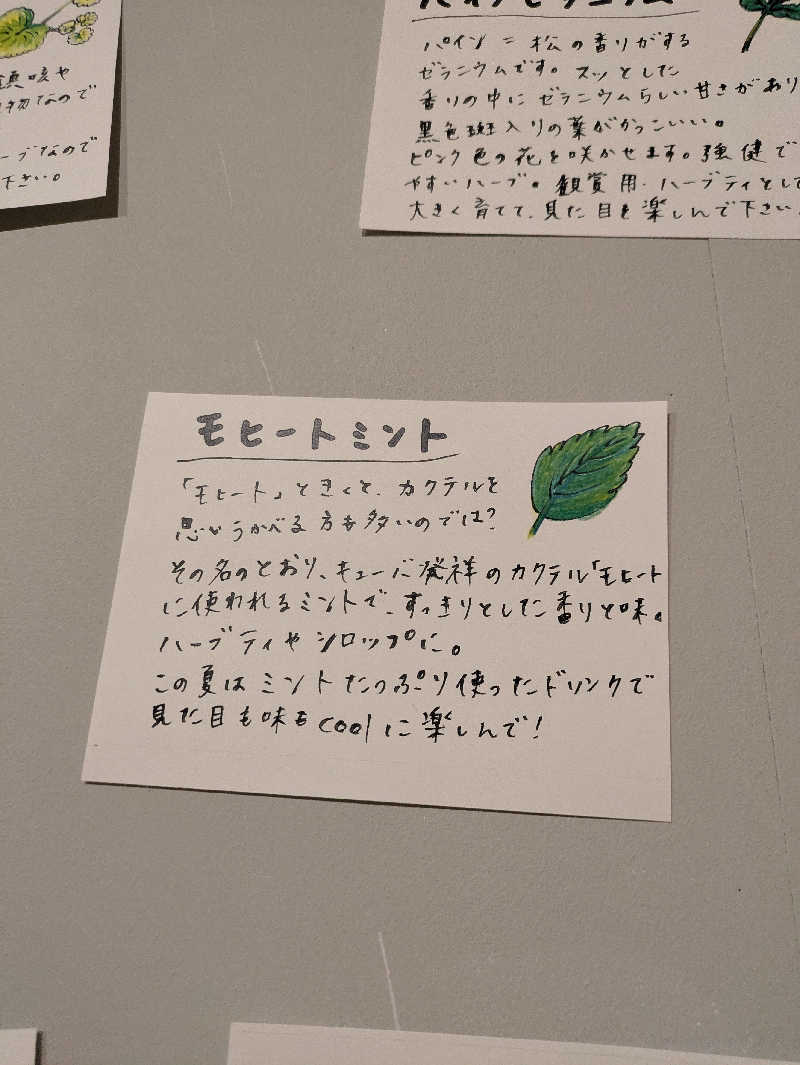 鎮咳や
物なので
ーブなので
下さい。
パインゼラニウム
パイン=松の香りがする
ゼラニウムです。スッとした
香りの中にゼラニウムらしい甘さがあり
黒色斑入りの葉がかっこいい。
ピンク色の花を咲かせます。強健で
やすいハーブ。観賞用・ハーブティとして
大きく育てて、見た目も楽しんで下さい。
モヒートミント
「モヒート」ときくと、カクテルを
思いうかべる方も多いのでは?
その名のとおり、キューバ発祥のカクテル「モヒート
に使われるミントで、すっきりとした香りと味。
ハーブティやシロップに。
この夏はミントたっぷり使ったドリンクで
見た目も味もcoolに楽しんで!